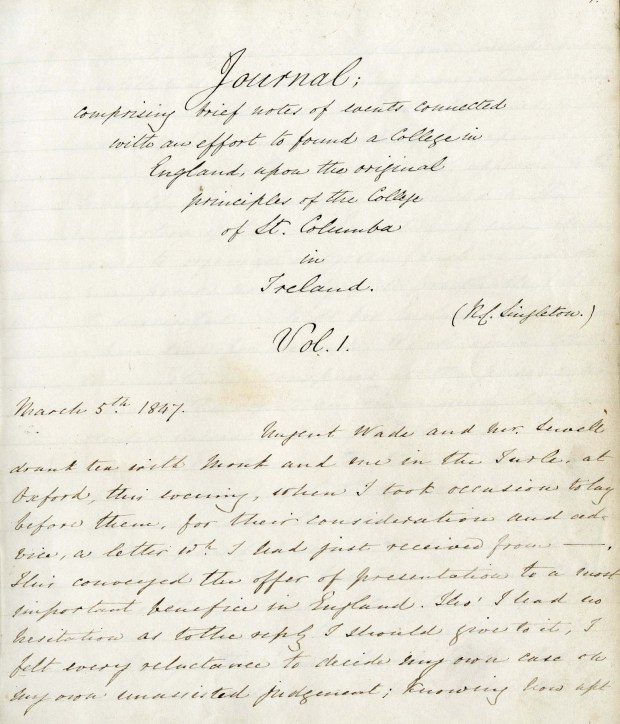 Journal;
comprising brief notes of events connected
with an effort to found a College in
England, upon the original
principles of the College
of St. Columba
in
Ireland.
(R.C. Singleton.)
Vol. 1.
March 5th 1847.
Nugent Wade and Mr. Sewell
drank tea with Monk and me in the Turle, at
Oxford, this evening, when I took occasion to lay
before them, for their consideration and ad-
vice, a letter wh. I had just received from —.
This conveyed the offer of presentation to a most
important benefice in England. Tho' I had no
hesitation as to the reply I should give to it, I
felt every reluctance to decide my own case on
my own unassisted judgement; knowing how apt